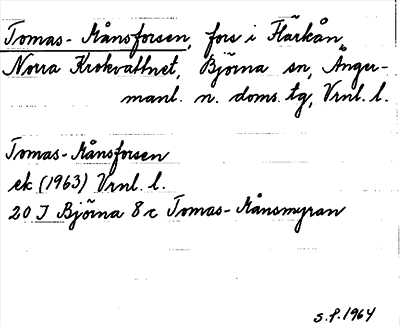 Tomas-Månsforsen, fors i Flärkån,
Norra Krokvattnet, Björna sn, Ånger-
manl. n. doms. tg, Vrnl. l.
Tomas-Månsforsen
ek (1963) Vrnl. l.
20 I Björna 8 c Tomas-Månsmyran
S.P. 1964